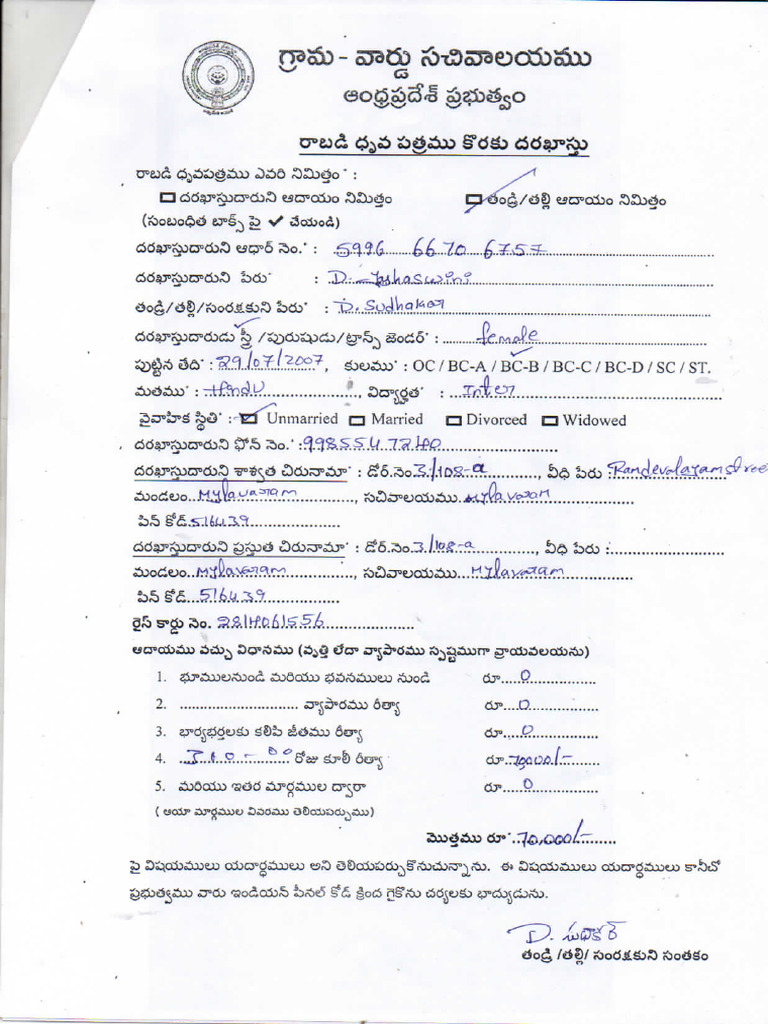 గ్రామ - వార్డు సచివాలయము
ఆంధ్రప్రదేశ్ ప్రభుత్వం
రాబడి ధృవ పత్రము కొరకు దరఖాస్తు
రాబడి ధృవపత్రము ఎవరి నిమిత్తం* :
దరఖాస్తుదారుని ఆదాయం నిమిత్తం తండ్రి/తల్లి ఆదాయం నిమిత్తం
(సంబంధిత బాక్స్ పై ✓ చేయండి)
దరఖాస్తుదారుని ఆధార్ నెం.* : 5996 6670 6757
దరఖాస్తుదారుని పేరు* : D. Jashaswini
తండ్రి/తల్లి/సంరక్షకుని పేరు* : D. Sudhakar
దరఖాస్తుదారుడు స్త్రీ /పురుషుడు/ట్రాన్స్ జెండర్* : female
పుట్టిన తేది* : 29/07/2007, కులము* : OC / BC-A / BC-B / BC-C / BC-D / SC / ST.
మతము* : Hindu, విద్యార్హత* : Inter
వైవాహిక స్థితి* : Unmarried Married Divorced Widowed
దరఖాస్తుదారుని ఫోన్ నెం.* : 9985547240
దరఖాస్తుదారుని శాశ్వత చిరునామా* : డోర్.నెం. 3/108-a, వీధి పేరు :
మండలం. Mylavaram, సచివాలయము. Mylavaram
పిన్ కోడ్. 516439
దరఖాస్తుదారుని ప్రస్తుత చిరునామా* : డోర్.నెం. 3/108-a, వీధి పేరు :
మండలం. Mylavaram, సచివాలయము. Mylavaram
పిన్ కోడ్. 516439
రైస్ కార్డు నెం. 2814061556
ఆదాయము వచ్చు విధానము (వృత్తి లేదా వ్యాపారము స్పష్టముగా వ్రాయవలయను)
1. భూములనుండి మరియు భవనములు నుండి రూ. 0
2. వ్యాపారము రీత్యా రూ. 0
3. భార్యభర్తలకు కలిపి జీతము రీత్యా రూ. 0
4. రోజు కూలీ రీత్యా రూ. 70,000/-
5. మరియు ఇతర మార్గముల ద్వారా రూ. 0
( ఆయా మార్గముల వివరము తెలియపర్చుము)
మొత్తము రూ* 70,000/-
పై విషయములు యదార్థములు అని తెలియపర్చుకొనుచున్నాను. ఈ విషయములు యదార్థములు కానిచో
ప్రభుత్వము వారు ఇండియన్ పీనల్ కోడ్ క్రింద గైకొను చర్యలకు భాద్యుడును.
D. సుధాకర్
తండ్రి /తల్లి/ సంరక్షకుని సంతకం